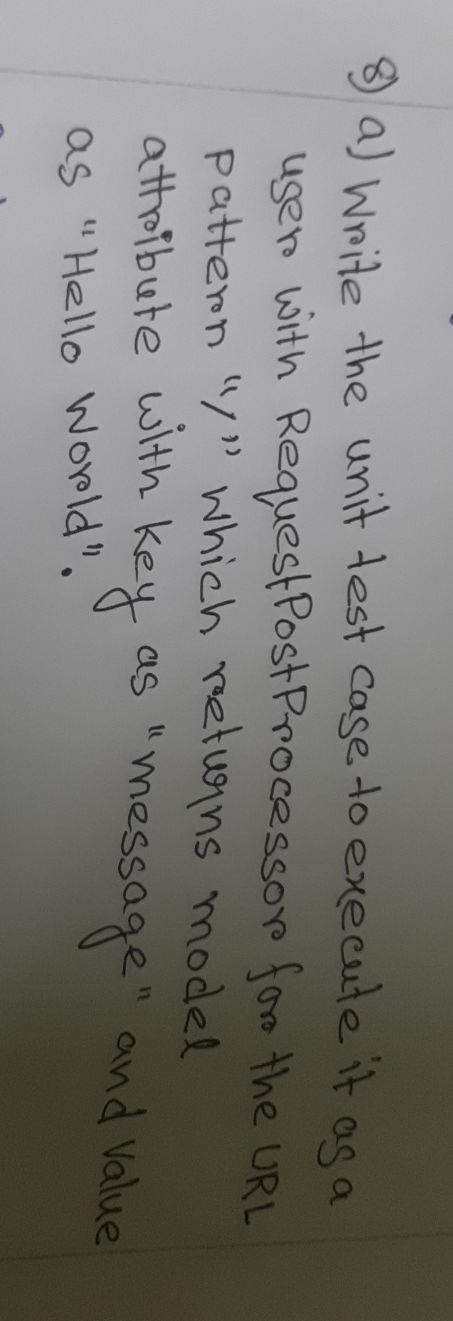 8) a) Write the unit test case to execute it as a
user with RequestPostProcessor for the URL
pattern "/" which returns model
attribute with key as "message" and value
as "Hello World".